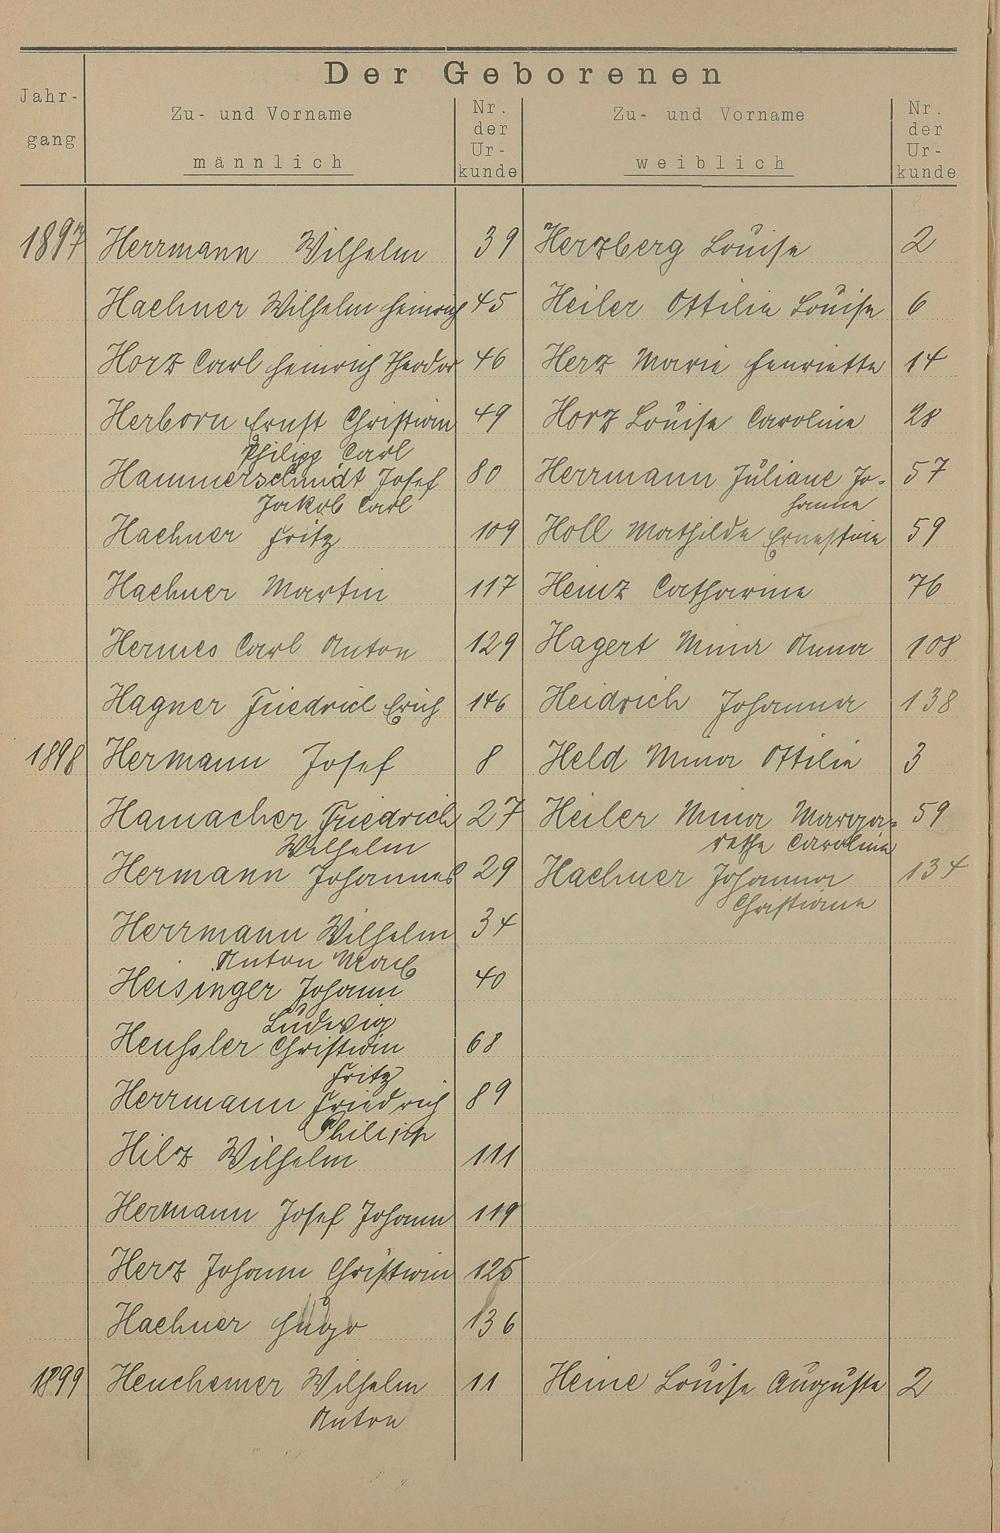 Der Geborenen
Jahr-
gang
Zu- und Vorname
männlich
Nr.
der
Ur-
kunde
Zu- und Vorname
weiblich
Nr.
der
Ur-
kunde
1897 Herrmann Wilhelm 39 Herzberg Louise 2
Haehner Wilhelm Heinrich 45 Heiler Ottilie Louise 6
Horz Carl Heinrich Theodor 46 Herz Marie Henriette 14
Herborn Ernst Christian 49 Horz Louise Caroline 28
Philipp Carl
Hammerschmidt Josef 80 Herrmann Juliane Jo-
Jakob Carl hanna 57
Haehner Fritz 109 Holl Mathilde Ernestine 59
Haehner Martin 117 Heinz Catharine 76
Hermes Carl Anton 129 Hagert Mina Anna 108
Hagner Friedrich Erich 146 Heidrich Johanna 138
1898 Hermann Josef 8 Held Mina Ottilie 3
Hamacher Friedrich 27 Heiler Mina Marga- 59
Wilhelm rethe Caroline
Hermann Johannes 29 Haehner Johanna 134
Christiane
Herrmann Wilhelm 34
Anton Marb
Heisinger Johann 40
Ludwig
Heußler Christian 68
Fritz
Herrmann Friedrich 89
Philipp
Hilz Wilhelm 111
Hermann Josef Johann 119
Herz Johann Christian 125
Haehner Hugo 136
1899 Henchemer Wilhelm 11 Heine Louise Auguste 2
Anton